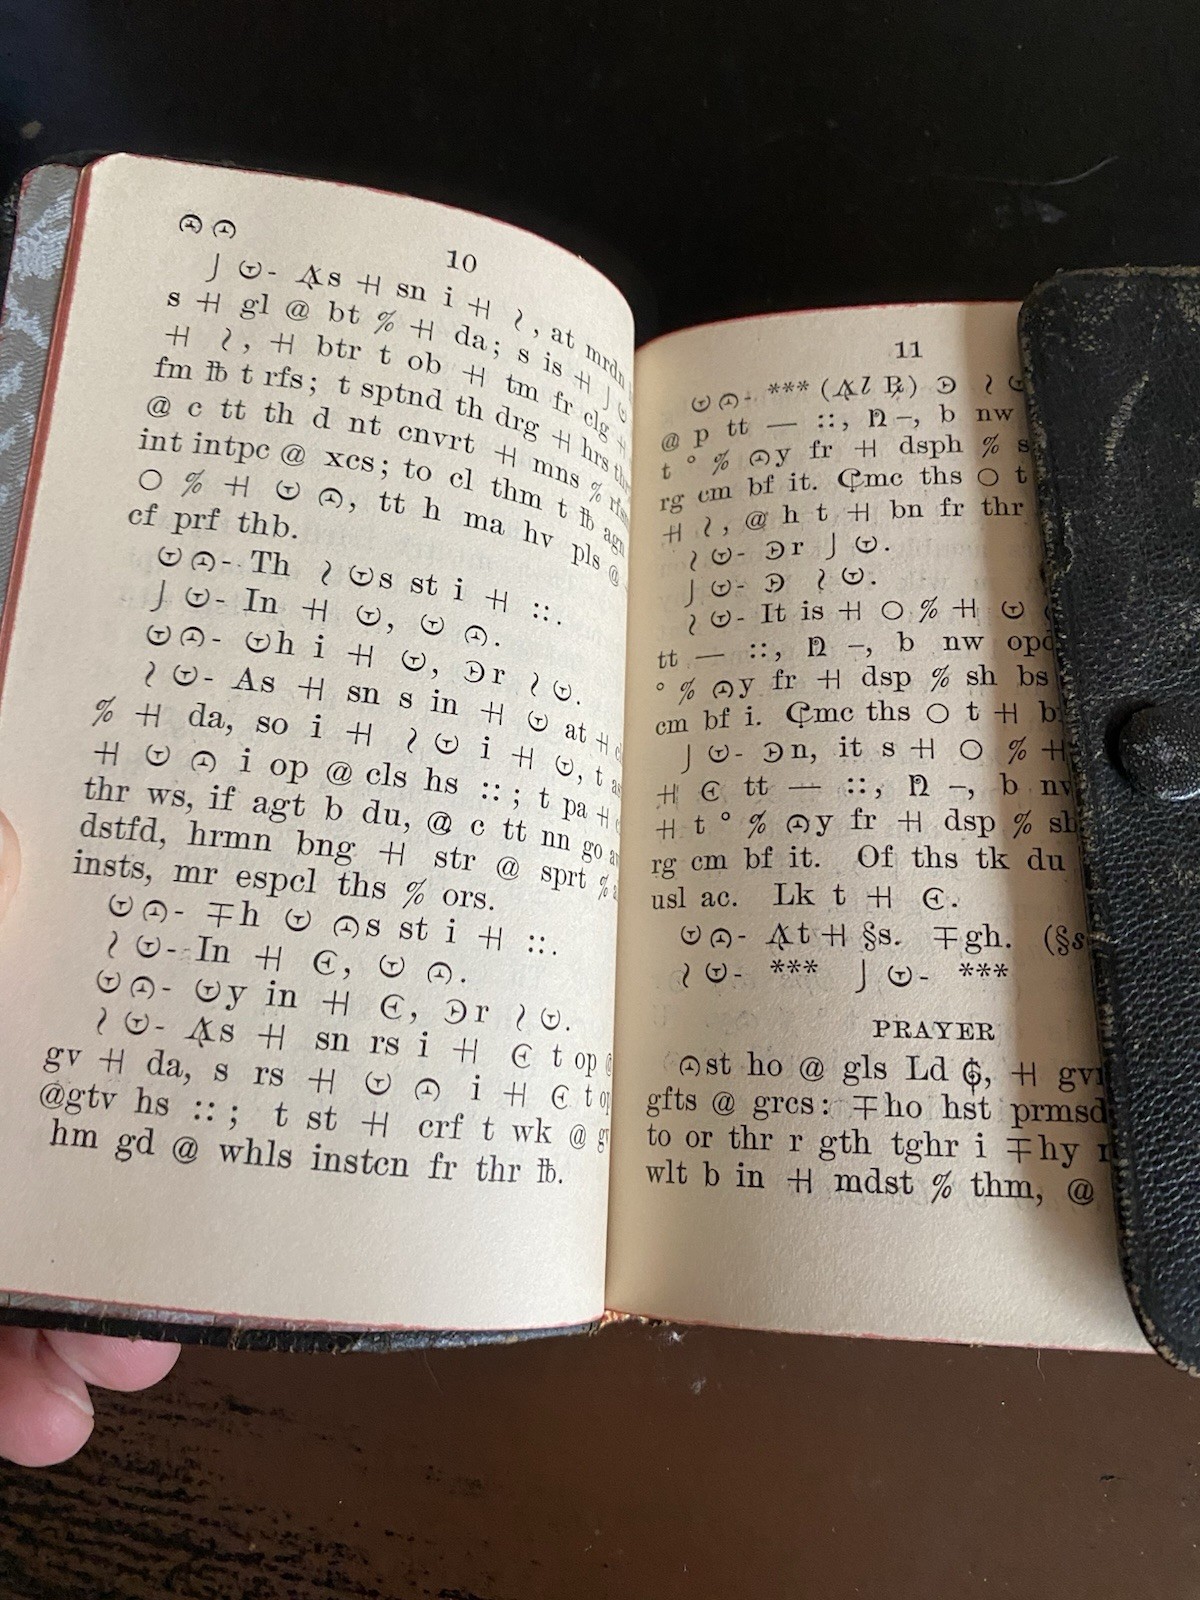 10
⅃ ☉- As ┤┤ sn i ┤┤ ≀, at mrdn
s ┤┤ gl @ bt % ┤┤ da; s is ┤┤ ⅃
┤┤ ≀, ┤┤ btr t ob ┤┤ tm fr clg
fm ℔ t rfs; t sptnd th drg ┤┤ hrs
@ c tt th d nt cnvrt ┤┤ mns %
int intpc @ xcs; to cl thm t ℔ agn
○ % ┤┤ ☉ ☉, tt h ma hv pls @
cf prf thb.
☉☉- Th ≀ ☉s st i ┤┤ ::.
⅃ ☉- In ┤┤ ☉, ☉ ☉.
☉☉- ☉h i ┤┤ ☉, ℈r ≀ ☉.
≀ ☉- As ┤┤ sn s in ┤┤ ☉ at ┤┤
% ┤┤ da, so i ┤┤ ≀ ☉ i ┤┤ ☉, t
┤┤ ☉ ☉ i op @ cls hs ::; t pa ┤┤
thr ws, if agt b du, @ c tt nn go
dstfd, hrmn bng ┤┤ str @ sprt %
insts, mr espcl ths % ors.
☉☉- ∓h ☉ ☉s st i ┤┤ ::.
≀ ☉- In ┤┤ Є, ☉ ☉.
☉☉- ☉y in ┤┤ Є, ℈r ≀ ☉.
≀ ☉- As ┤┤ sn rs i ┤┤ Є t op
gv ┤┤ da, s rs ┤┤ ☉ ☉ i ┤┤ Є t
@gtv hs ::; t st ┤┤ crf t wk @
hm gd @ whls instcn fr thr ℔.
11
☉☉- *** (Al ℞) ℈ ≀
@ p tt — ::, n –, b nw
t ° % ☉y fr ┤┤ dsph %
rg cm bf it. Cmc ths ○ t
┤┤ ≀, @ h t ┤┤ bn fr thr
≀ ☉- ℈r ⅃ ☉.
⅃ ☉- ℈ ≀ ☉.
≀ ☉- It is ┤┤ ○ % ┤┤ ☉
tt — ::, n –, b nw
° % ☉y fr ┤┤ dsp % sh bs
cm bf i. Cmc ths ○ t ┤┤
⅃ ☉- ℈n, it s ┤┤ ○ % ┤┤
┤┤ Є tt — ::, n –, b
┤┤ t ° % ☉y fr ┤┤ dsp %
rg cm bf it. Of ths tk du
usl ac. Lk t ┤┤ Є.
☉☉- At ┤┤ §s. ∓gh.
≀ ☉- *** ⅃ ☉- ***
PRAYER
☉st ho @ gls Ld G, ┤┤
gfts @ grcs: ∓ho hst prmsd
to or thr r gth tghr i ∓hy
wlt b in ┤┤ mdst % thm, @